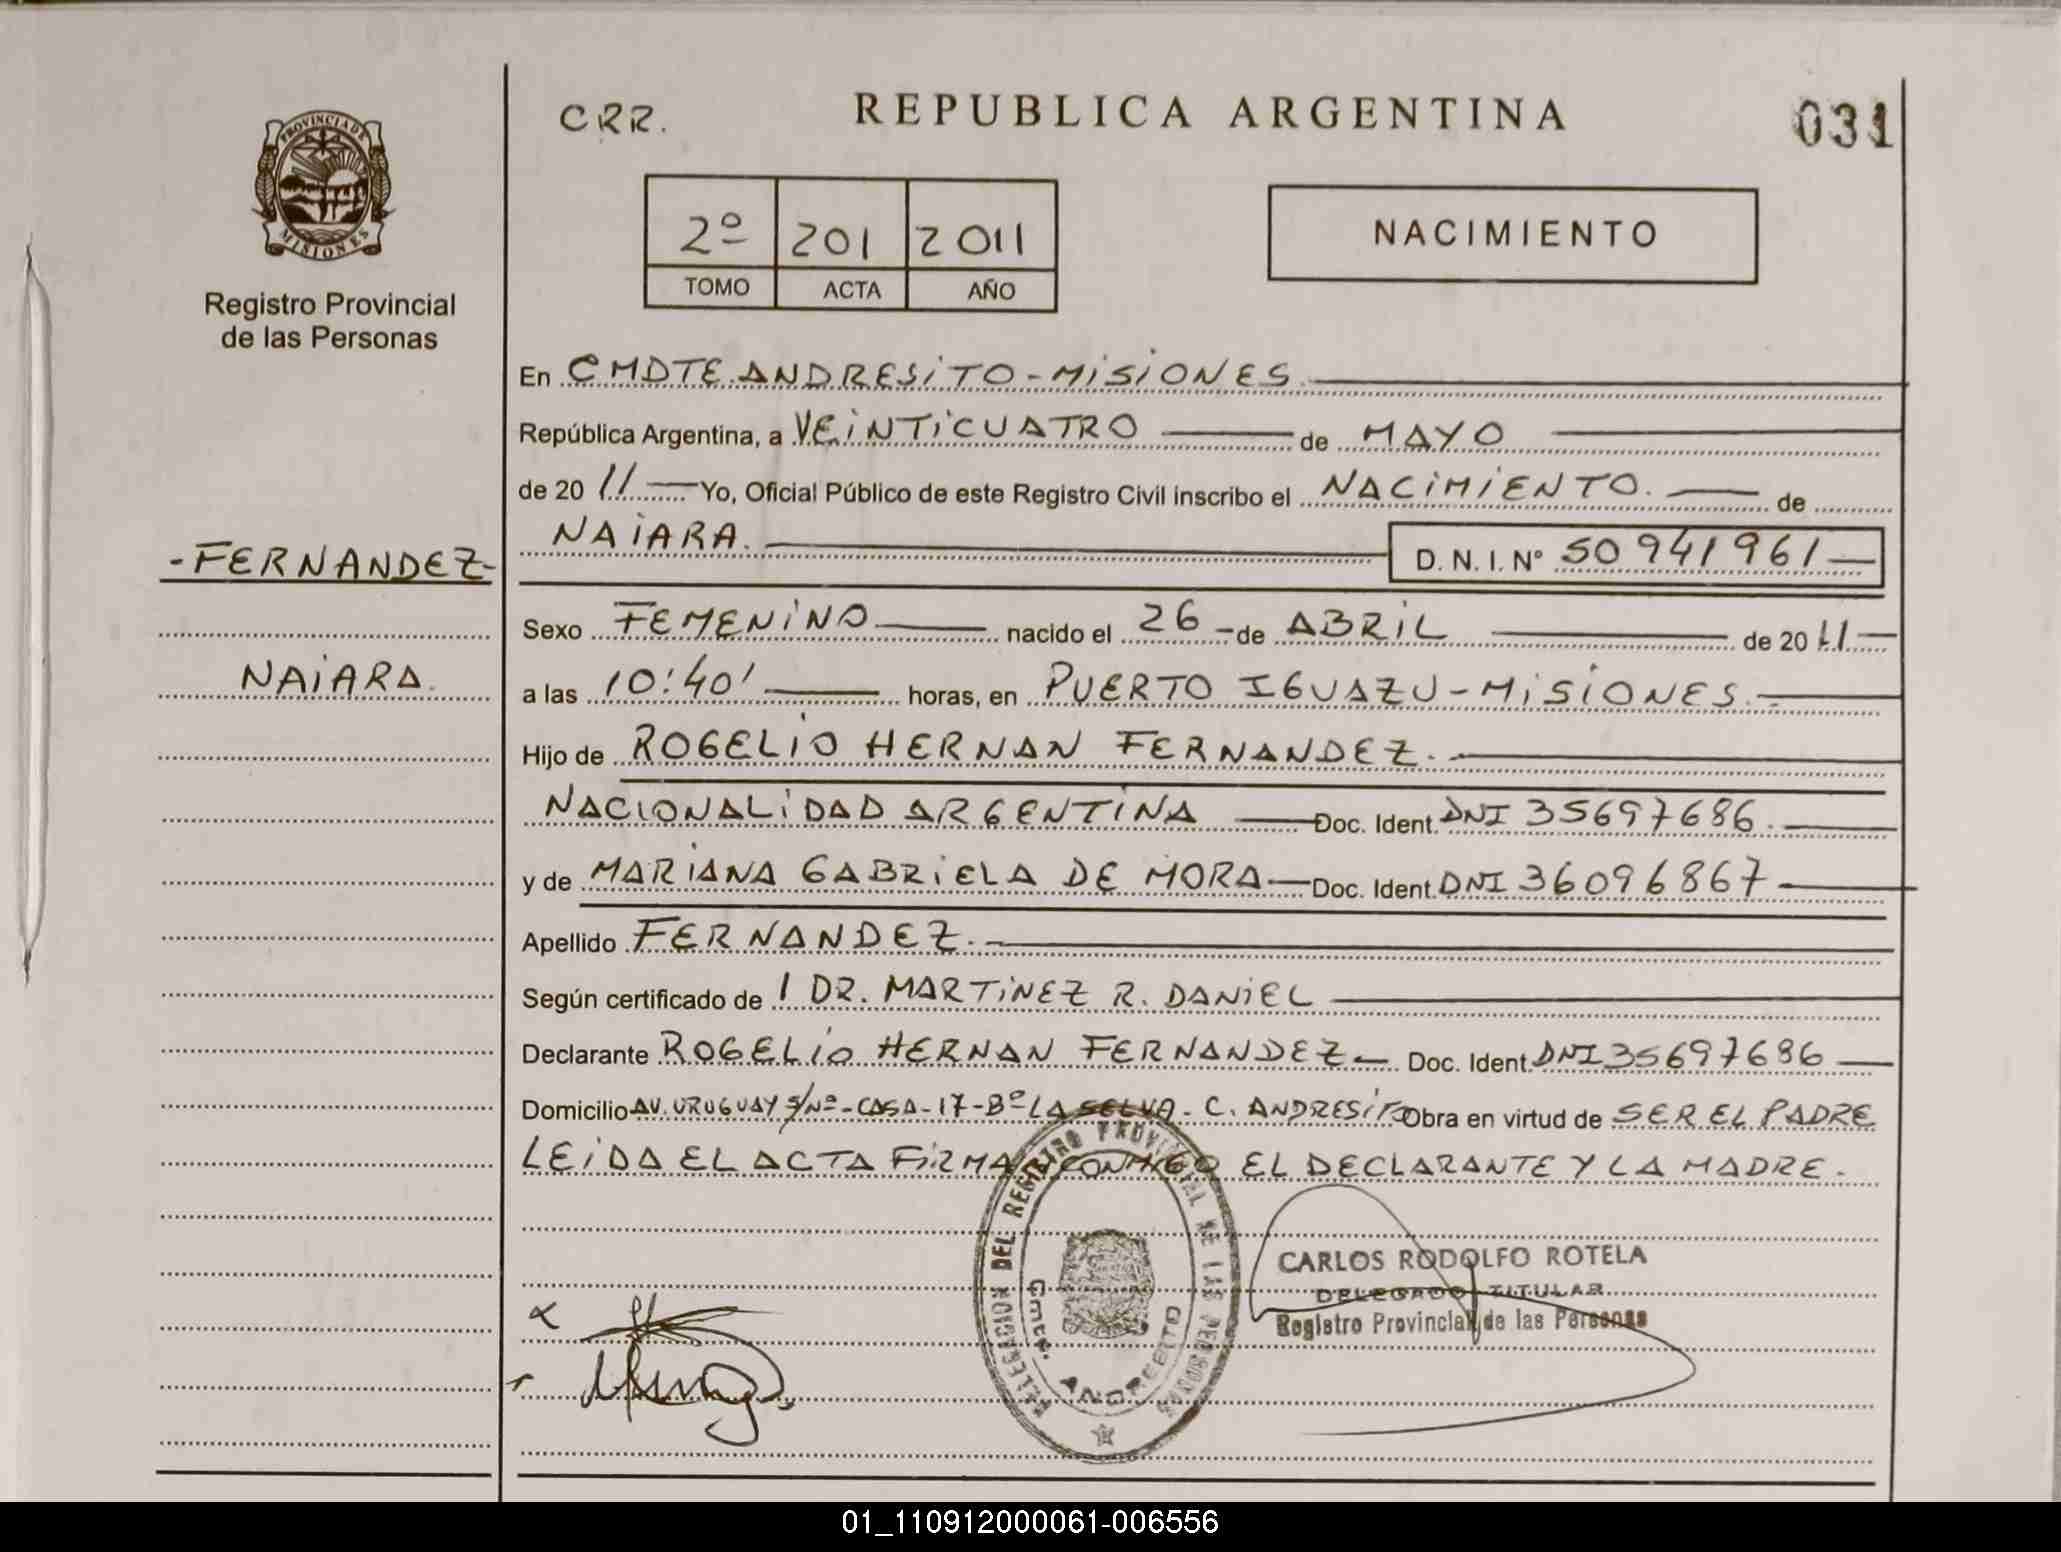 PROVINCIA DE
MISIONES
Registro Provincial
de las Personas
-FERNANDEZ-
NAiARA.
CRR.
REPUBLICA ARGENTINA
031
2º 201 2011
TOMO ACTA AÑO
NACIMIENTO
En CMDTE ANDRESiTO-MiSiONES.
República Argentina, a VEiNTiCUATRO de MAYO
de 20 11 Yo, Oficial Público de este Registro Civil inscribo el NACiMiENTO. de
NAiARA. D. N. I. Nº 50941961
Sexo FEMENiNO nacido el 26 -de ABRiL de 20 11
a las 10:40' horas, en PUERTO IGUAZU-MiSiONES.
Hijo de ROGELiO HERNAN FERNANDEZ.
NACIONALiDAD ARGENTiNA Doc. Ident. DNI 35697686.
y de MARiANA GABRiELA DE MORA Doc. Ident. DNI 36096867
Apellido FERNANDEZ.
Según certificado de 1 DR. MARTiNEZ R. DANiEL
Declarante ROGELiO HERNAN FERNANDEZ Doc. Ident. DNI 35697686
Domicilio AV. URUGUAY S/Nº-CASA-17-Bº LA SELVA. C. ANDRESiTO Obra en virtud de SER EL PADRE
LEiDA EL ACTA FiRMA CONMIGO EL DECLARANTE Y LA MADRE.
DELEGACION DEL REGISTRO PROVINCIAL DE LAS PERSONAS
Cmte. ANDRESITO
CARLOS RODOLFO ROTELA
DELEGADO TITULAR
Registro Provincial de las Personas
01_110912000061-006556